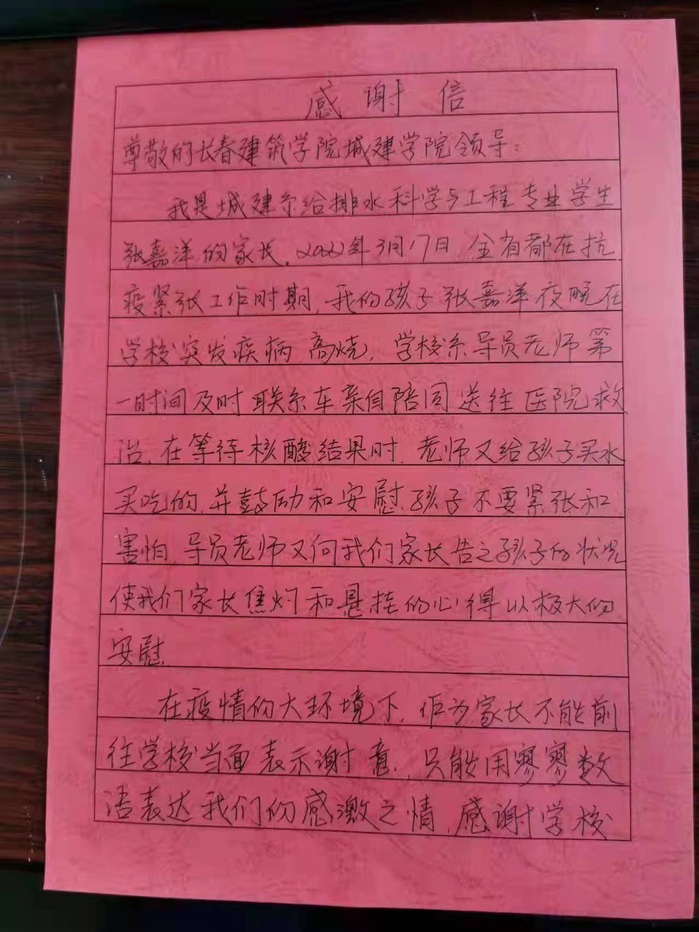 感谢信
尊敬的长春建筑学院城建学院领导:
我是城建系给排水科学与工程专业学生
张嘉洋的家长,2022年3月17日,全省都在抗
疫紧张工作时期,我的孩子张嘉洋夜晚在
学校突发疾病高烧,学校系导员老师第
一时间及时联系车亲自陪同送往医院救
治,在等待核酸结果时,老师又给孩子买水
买吃的,并鼓励和安慰孩子不要紧张和
害怕,导员老师又向我们家长告之孩子的状况
使我们家长焦灼和悬挂的心得以极大的
安慰.
在疫情的大环境下,作为家长不能前
往学校当面表示谢意,只能用寥寥数
语表达我们的感激之情,感谢学校